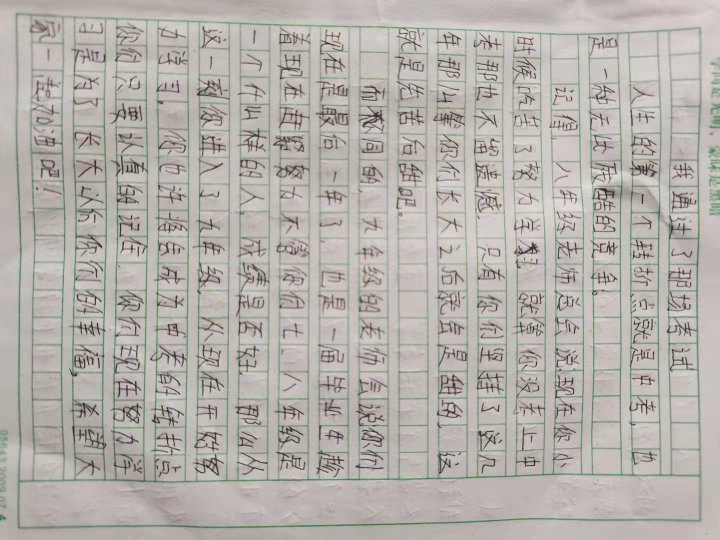 我通过了那场考试
人生的第一个转折点就是中考，也
是一种无比残酷的竞争。
记得，八年级老师总会说：现在你小
时候吃苦了努力学习，就算你没考上中
考那也不留遗憾，只有你们坚持了这几
年那么等你们长大之后就会是甜的，这
就是先苦后甜吧。
而不同的，九年级的老师会说你们
现在是最后一年了，也是一届毕业生，趁
着现在赶紧努力不管你们七、八年级是
一个什么样的人，成绩是否好，那么从
这一刻你进入了九年级，从现在开始努
力学习，你也许将会成为中考的转折点
你们只要认真的记住，你们现在努力学
习是为了长大以后你们的幸福，希望大
家一起加油吧！
08643 2009.07